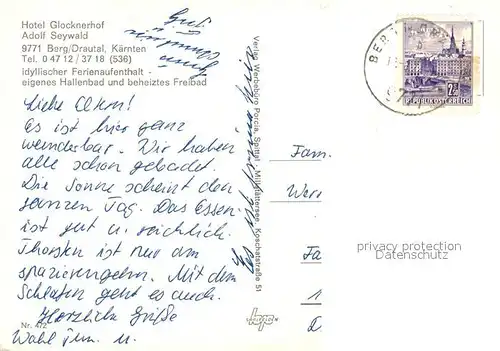 Hotel Glocknerhof
Adolf Seywald
9771 Berg/Drautal, Kärnten
Tel. 0 47 12 / 37 18 (536)
idyllischer Ferienaufenthalt -
eigenes Hallenbad und beheiztes Freibad
Liebe Eltern!
Es ist hier ganz
wunderbar. Wir haben
alle schon gebadet.
Die Sonne scheint den
ganzen Tag. Das Essen
ist gut u. reichlich.
Thorsten ist nur am
spazierengehn. Mit dem
Schlafen geht es auch.
Herzliche Grüße
Nr. 472
Verlag Werbebüro Porcia, Spittal - Millstättersee, Koschatstraße 51
Es ist
Fam.
Fa
1
D
BERG
977
REPUBLIK ÖSTERREICH
privacy protection
Datenschutz